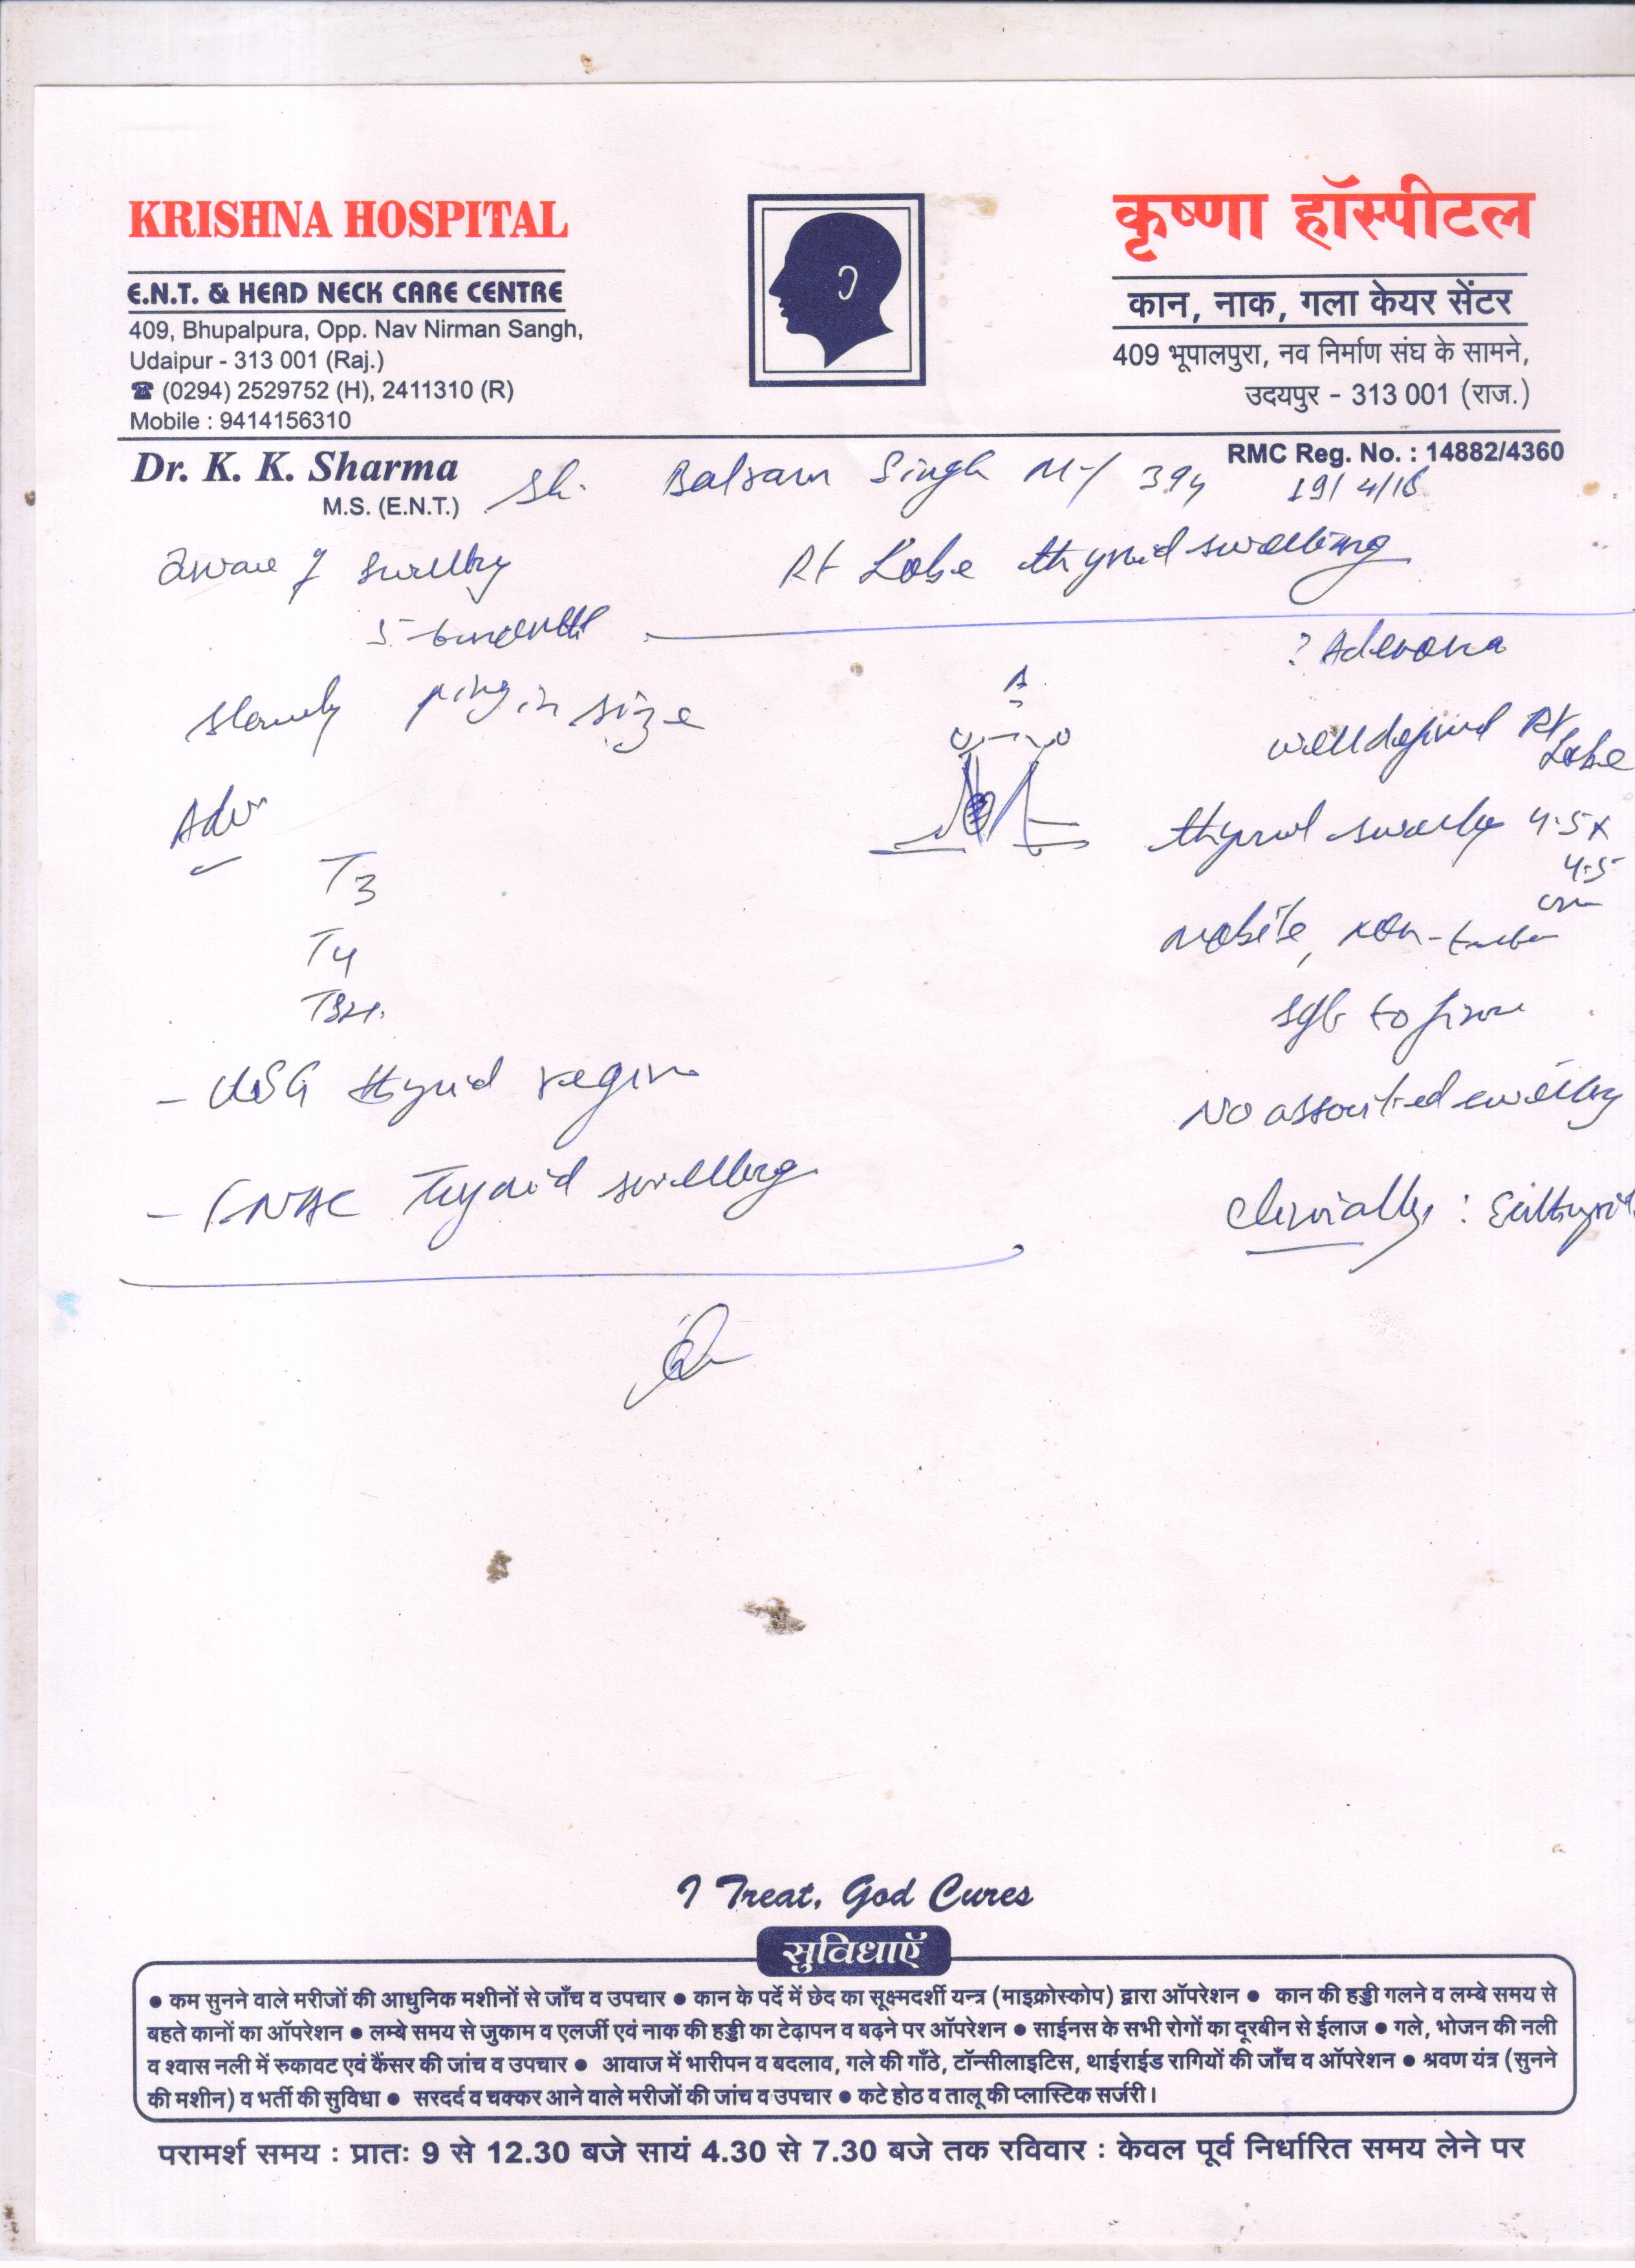 KRISHNA HOSPITAL
E.N.T. & HEAD NECK CARE CENTRE
409, Bhupalpura, Opp. Nav Nirman Sangh,
Udaipur - 313 001 (Raj.)
☎ (0294) 2529752 (H), 2411310 (R)
Mobile : 9414156310
कृष्णा हॉस्पीटल
कान, नाक, गला केयर सेंटर
409 भूपालपुरा, नव निर्माण संघ के सामने,
उदयपुर - 313 001 (राज.)
RMC Reg. No. : 14882/4360
Dr. K. K. Sharma
M.S. (E.N.T.)
Sh. Singh M/ 39y 19/4/
aware of swelling
Rt Lobe thyroid swelling
5-
? Adenoma
slowly in size
well defined Rt
Lobe
Adv
thyroid swelling 4.5x
4.5
cm
T3
mobile, non-
T4
TSH.
soft to firm
- USG thyroid region
No associated swelling
- FNAC Thyroid swelling
Clinically : Euthyroid
I Treat, God Cures
सुविधाएँ
● कम सुनने वाले मरीजों की आधुनिक मशीनों से जाँच व उपचार ● कान के पर्दे में छेद का सूक्ष्मदर्शी यन्त्र (माइक्रोस्कोप) द्वारा ऑपरेशन ● कान की हड्डी गलने व लम्बे समय से
बहते कानों का ऑपरेशन ● लम्बे समय से जुकाम व एलर्जी एवं नाक की हड्डी का टेढ़ापन व बढ़ने पर ऑपरेशन ● साईनस के सभी रोगों का दूरबीन से ईलाज ● गले, भोजन की नली
व श्वास नली में रुकावट एवं कैंसर की जांच व उपचार ● आवाज में भारीपन व बदलाव, गले की गाँठे, टॉन्सीलाइटिस, थाईराईड रागियों की जाँच व ऑपरेशन ● श्रवण यंत्र (सुनने
की मशीन) व भर्ती की सुविधा ● सरदर्द व चक्कर आने वाले मरीजों की जांच व उपचार ● कटे होठ व तालू की प्लास्टिक सर्जरी।
परामर्श समय : प्रातः 9 से 12.30 बजे सायं 4.30 से 7.30 बजे तक रविवार : केवल पूर्व निर्धारित समय लेने पर